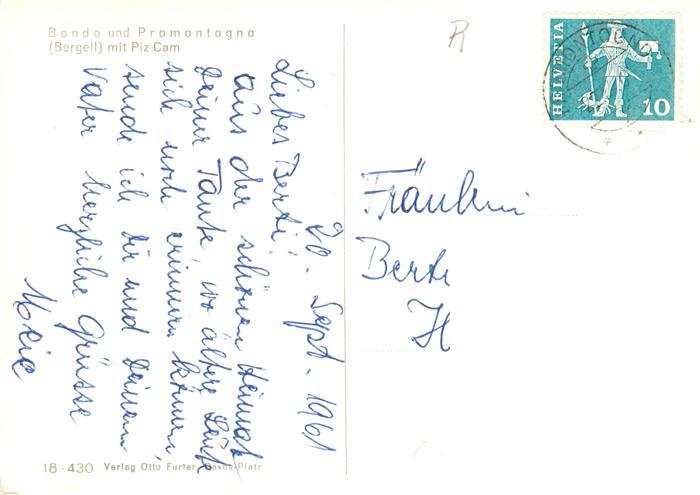 Bondo und Promontogno
(Bergell) mit Piz Cam
20. Sept. 1961
Liebes Berti!
aus der schönen Heimat
Deiner Tante, wo ältere Leute
sich noch erinnern können,
sende ich Dir und Deinem
Vater herzliche Grüsse
18-430 Verlag Otto Furter, Davos-Platz
R
HELVETIA
10
MONTOGNO
Fräulein
Berti
H